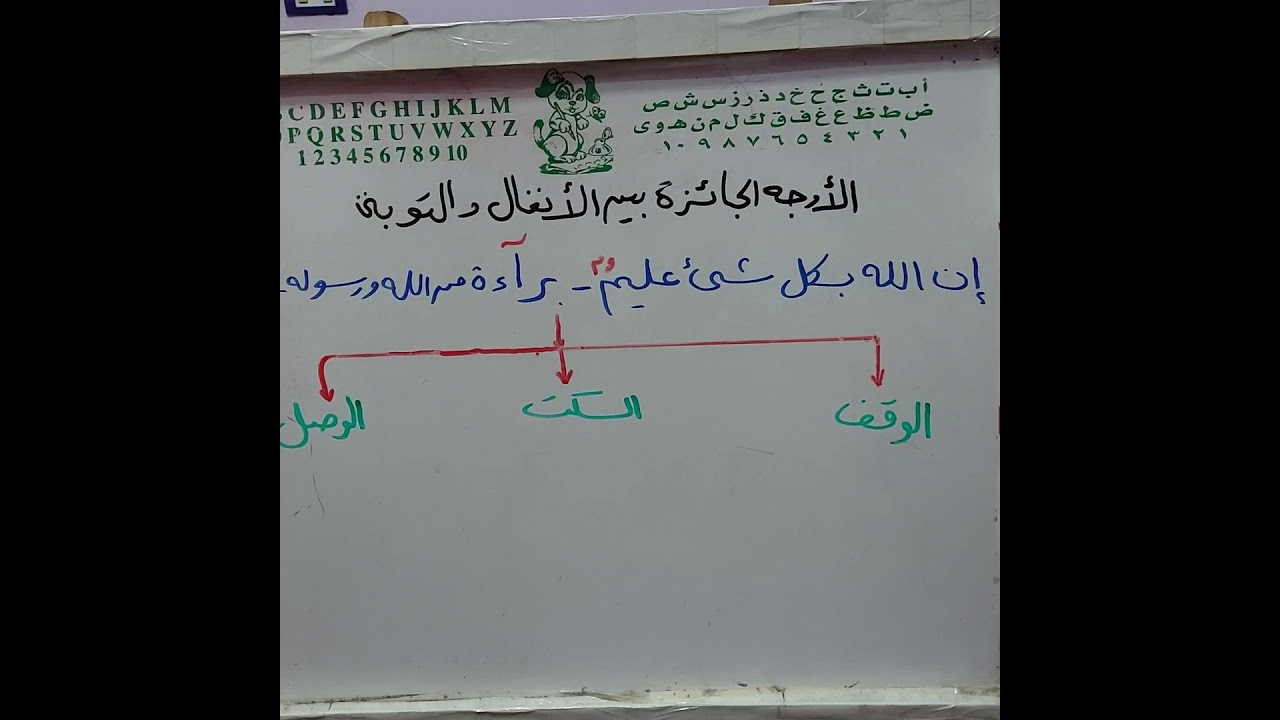 CDEFGHIJKLM
PQRSTUVWXYZ
12345678910
أ ب ت ث ج ح خ د ذ ر ز س ش ص
ض ط ظ ع غ ف ق ك ل م ن هـ و ى
١ ٢ ٣ ٤ ٥ ٦ ٧ ٨ ٩ ١٠
الأوجه الجائزة بين الأنفال والتوبة
إن الله بكل شئ عليم - برآءة من الله ورسوله
الوقف
السكت
الوصل